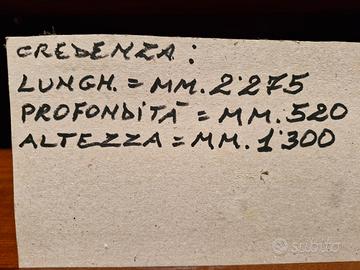 CREDENZA:
LUNGH. = MM. 2'275
PROFONDITÀ = MM. 520
ALTEZZA = MM. 1'300
subito